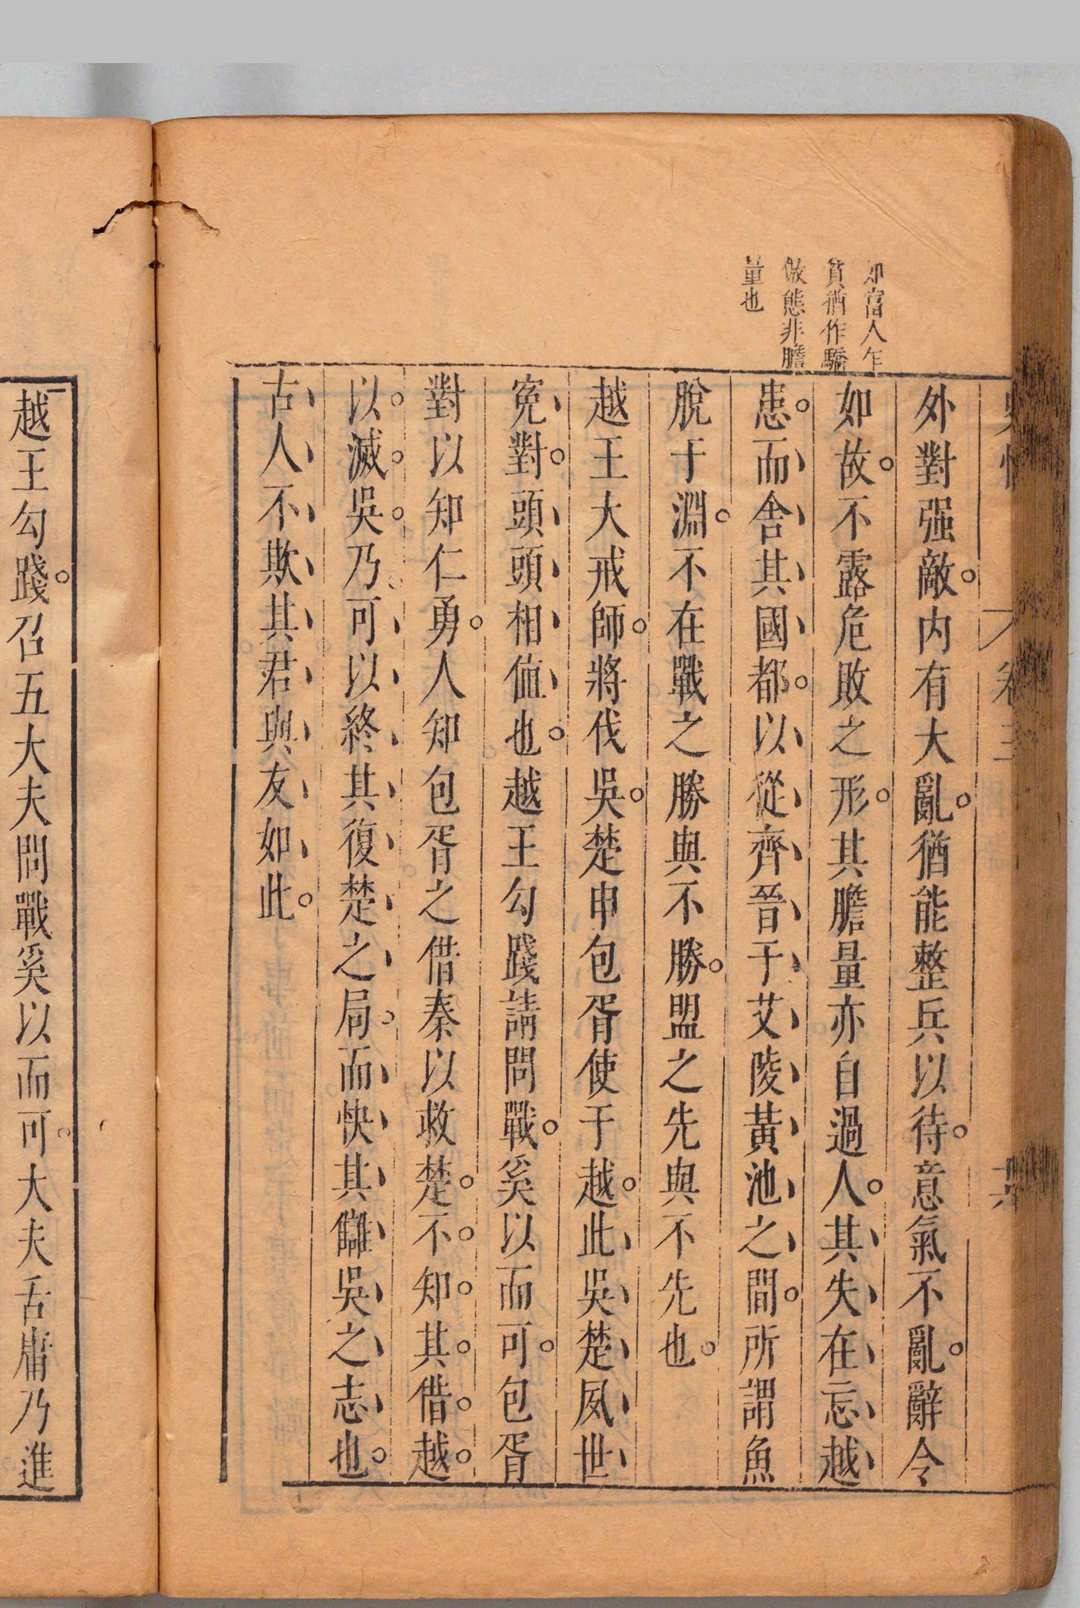 卷三
外對强敵。内有大亂。猶能整兵以待。意氣不亂。辭令
如故。不露危敗之形。其膽量亦自過人。其失在忘越
患。而舍其國都。以從齊晉于艾陵黃池之間。所謂魚
脫于淵。不在戰之勝與不勝。盟之先與不先也。
越王大戒師。將伐吳。楚申包胥使于越。此吳楚夙世
寃對。頭頭相值也。越王勾踐請問戰。奚以而可。包胥
對以知仁勇。人知包胥之借秦以救楚。不知其借越
以滅吳。乃可以終其復楚之局。而快其讎吳之志也。
古人不欺其君與友如此。
如富人乍
貧猶作驕
倣態非膽
量也
越王勾踐。召五大夫問戰奚以而可。大夫舌庸乃進